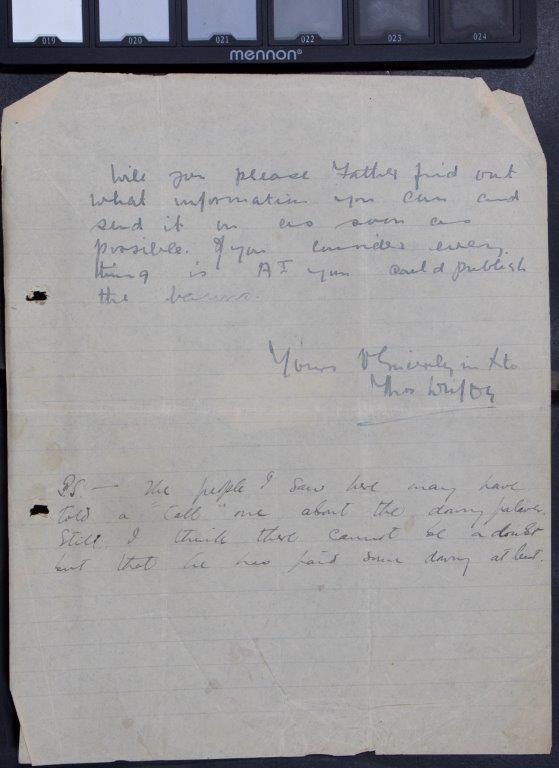 019 020 021 022 023 024
mennon®
Will you please Father find out
what information you can and
send it on as soon as
possible. If you consider every
thing is A I you could publish
the banns.
Yours V Sincerely in Xto
Thos
PS — The people I saw here may have
told a "tall" one about the dowry palaver.
Still I think there cannot be a doubt
but that he has paid some dowry at least.